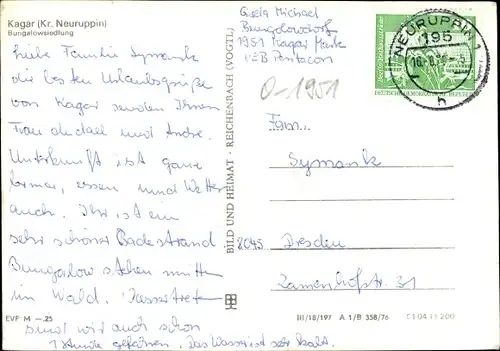 Kagar (Kr. Neuruppin)
Bungalowsiedlung
Liebe Familie Symank
die besten Urlaubsgrüße
von Kagar senden Ihnen
Frau Michael und André.
Unterkunft ist ganz
Essen und Wetter
auch. Hier ist ein
sehr schöner Badestrand
Bungalow stehen mitten
im Wald. Wassertreten
sind wir auch schon
1 Stunde gefahren. Das Wasser ist sehr kalt.
EVP M —.25
BILD UND HEIMAT · REICHENBACH (VOGTL)
Gisela Michael
Bungalowdorf
1951 Kagar Mark
VEB Pentacon
0-1951
NEURUPPIN 1
195
h
Fam.
Symank
8045 Dresden
Zamenhofstr. 31
III/18/197 A 1/B 358/76 01 04 11 200